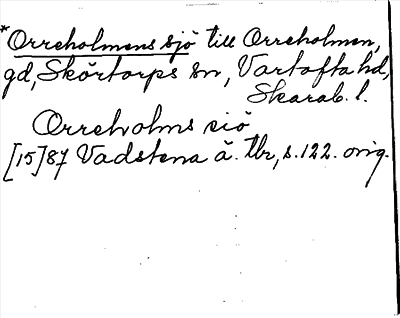 *Orreholmens sjö till Orreholmen,
gd, Skörtorps sn, Vartofta hd,
Skarab. l.
Orreholms siö
[15]87 Vadstena ä. tbr, s. 122. orig.